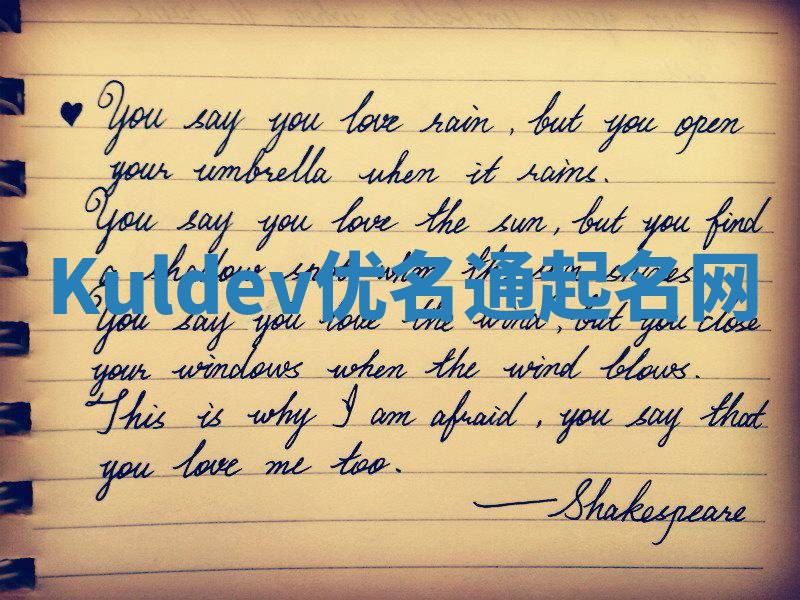 ♥ You say you love rain, but you open
your umbrella when it rains.
You say you love the sun, but you find
a shadow spot when the sun shines.
Kuldev优名通起名网
You say you love the wind, but you close
your windows when the wind blows.
This is why I am afraid, you say that
you love me too.
—Shakespeare